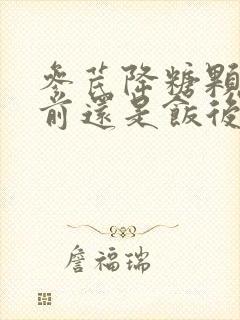 參芪降糖顆
前還是飯後
詹福瑞